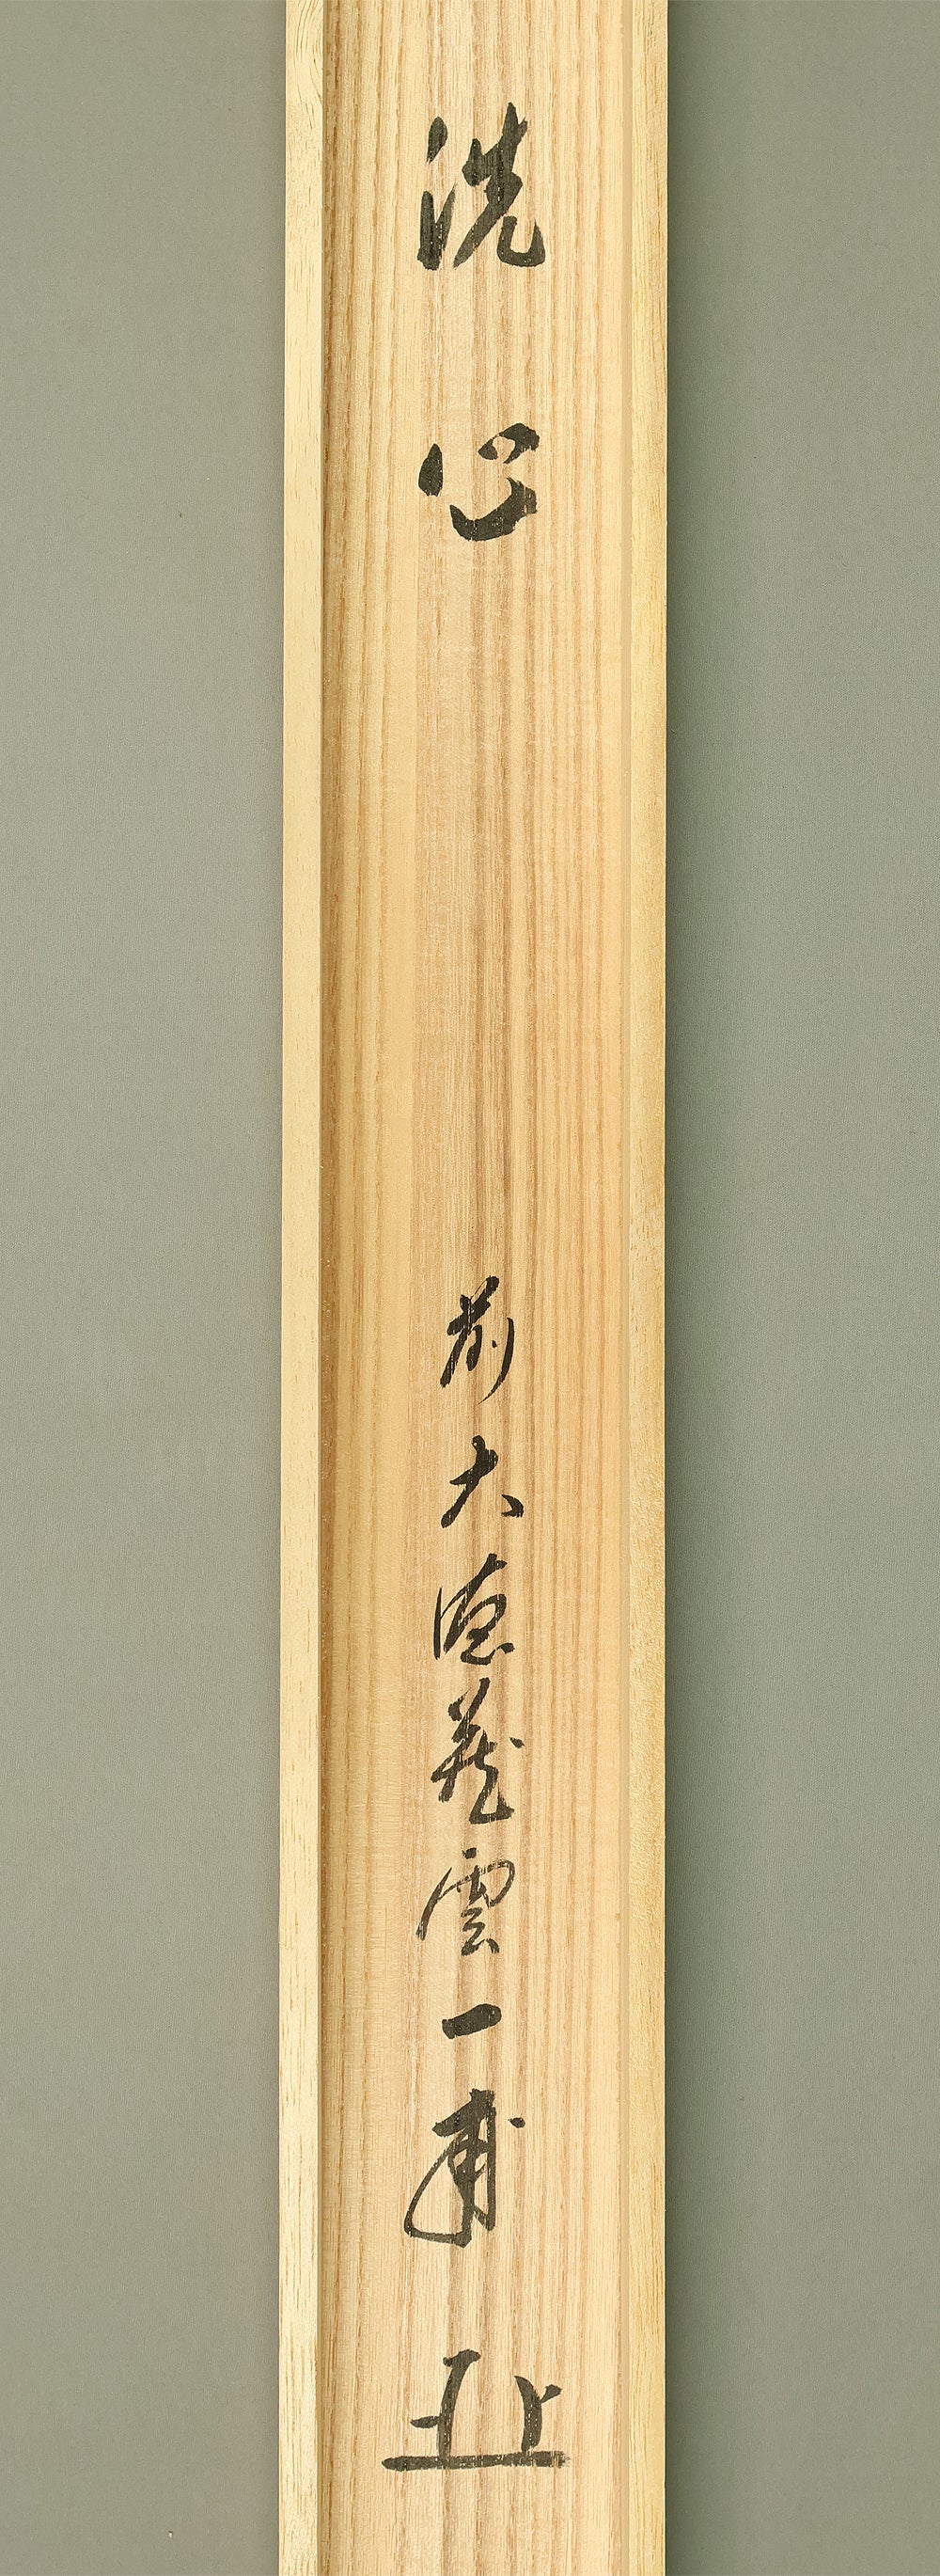 洗心
前大徳蔵雲一甫